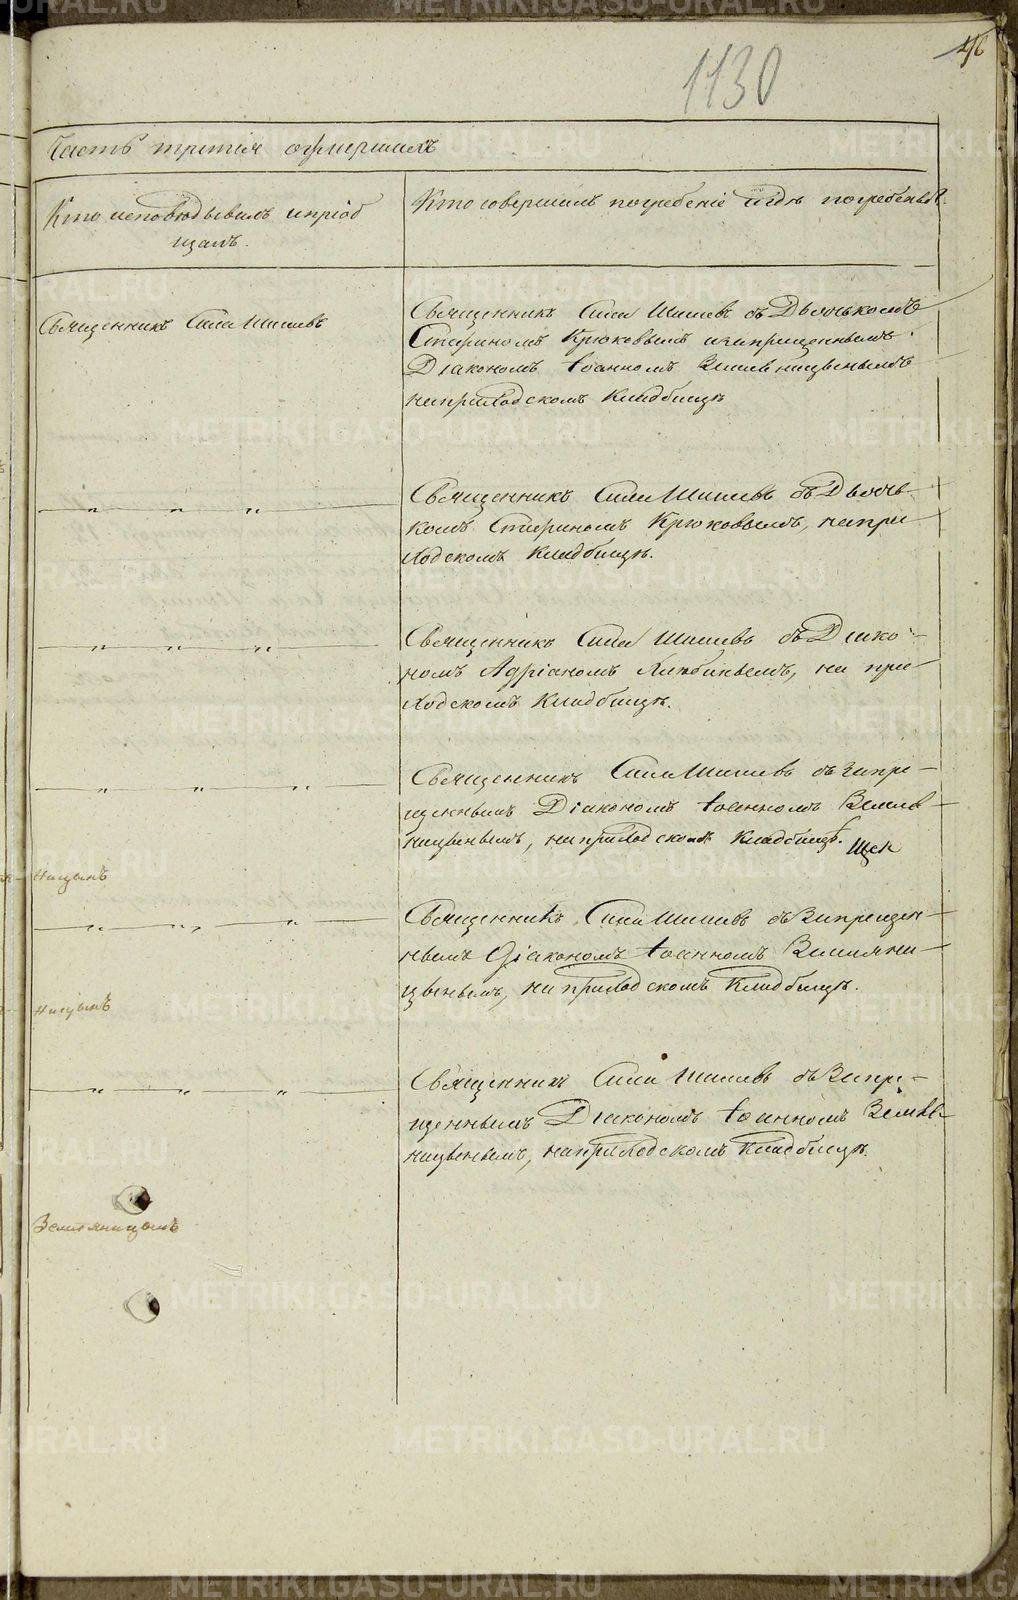 46
1130
Часть третія оумершихъ
Кто исповѣдывалъ ипріоб
щалъ.
Кто совершалъ погребеніе игдѣ погребены.
Священникъ Сила Шишевъ
Священникъ Сила Шишевъ съ Дьячькомъ
Стефаномъ Крюковымъ изапрещеннымъ
Діакономъ Іоанномъ Земляницынымъ
наприходскомъ Кладбищѣ
Священникъ Сила Шишевъ съ Дьячь
комъ Стефаномъ Крюковымъ, напри
ходскомъ Кладбищѣ.
Священникъ Сила Шишевъ съ Діако-
номъ Адріаномъ на при
ходскомъ Кладбищѣ.
Священникъ Сила Шишевъ съ Запре-
щеннымъ Діакономъ Іоанномъ Земля-
ницынымъ, наприходскомъ Кладбищѣ.
Ницынъ
Священникъ Сила Шишевъ съ Запрещен-
нымъ Діакономъ Іоанномъ Земляни-
цынымъ, на приходскомъ Кладбищѣ.
Ницынъ
Священникъ Сила Шишевъ съ Запре-
щеннымъ Діакономъ Іоанномъ Земля-
ницынымъ, наприходскомъ Кладбищѣ.
Земляницынъ
METRIKI.GASO-URAL.RU